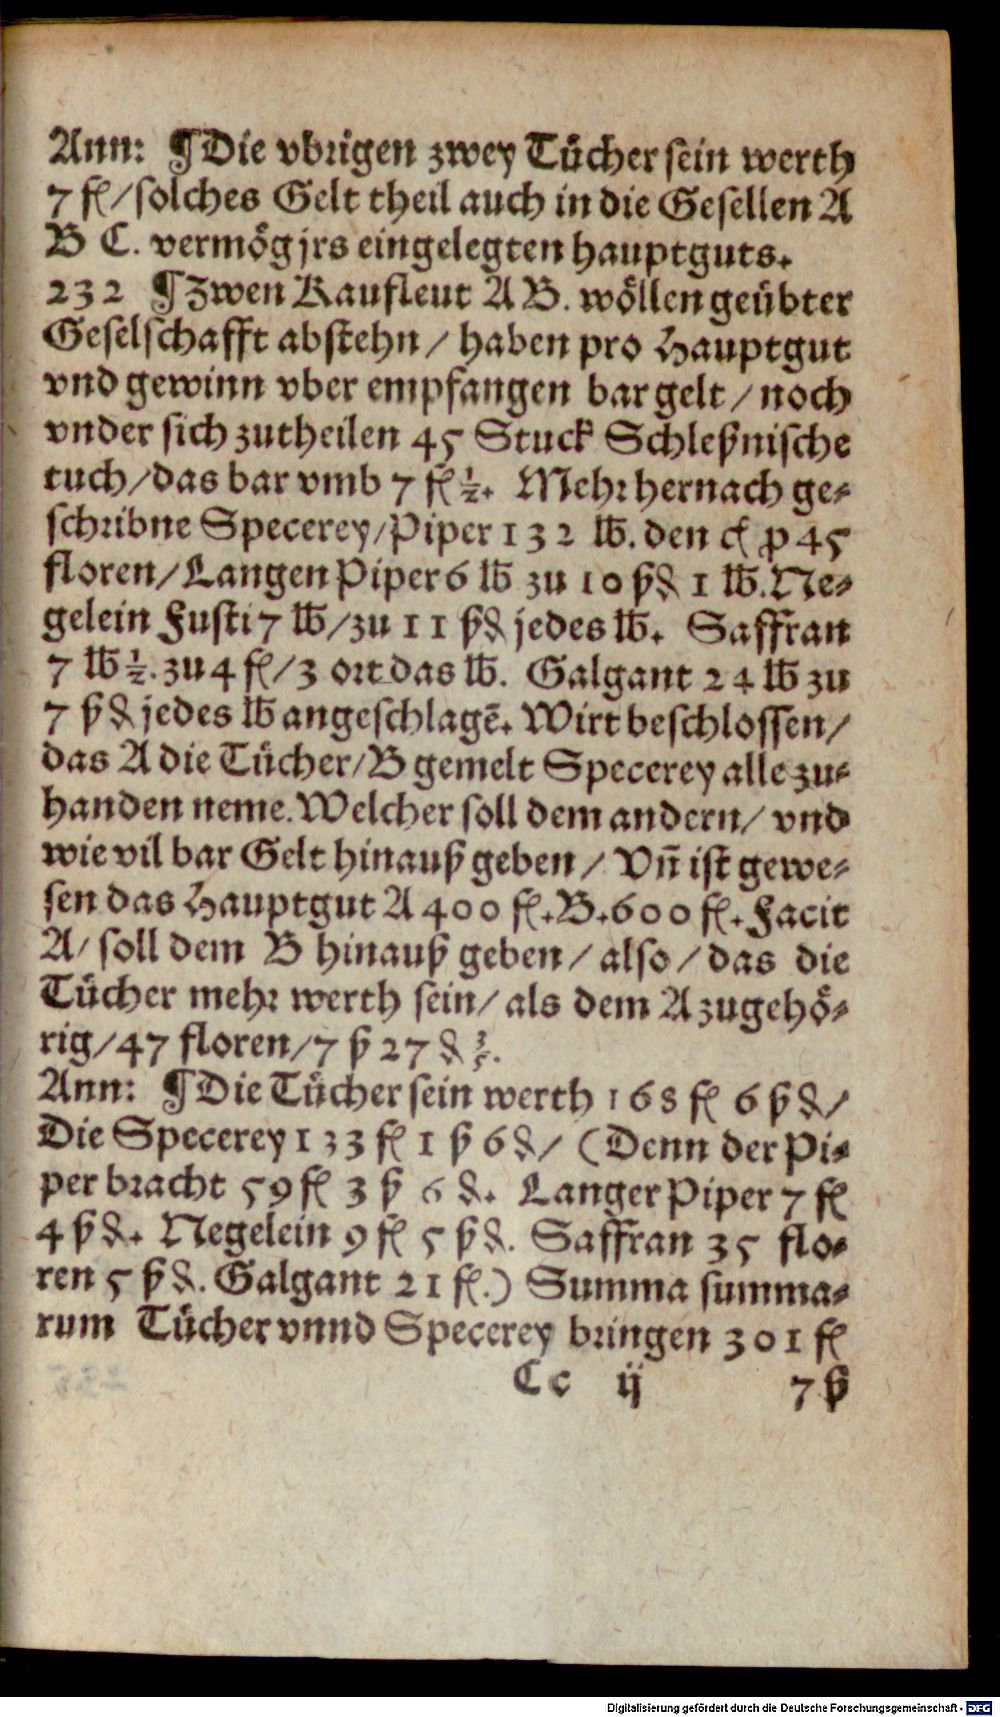 Ann: ¶ Die vbrigen zwey Tücher sein werth
7 fl/ solches Gelt theil auch in die Gesellen A
B C. vermög jrs eingelegten hauptguts.
232 ¶ Zwen Kaufleut A B. wöllen geübter
Geselschafft abstehn / haben pro Hauptgut
vnd gewinn vber empfangen bar gelt / noch
vnder sich zutheilen 45 Stuck Schleßnische
tuch/das bar vmb 7 fl ½. Mehr hernach ge-
schribne Specerey/Piper 132 lb. den cl p 45
floren/Langen Piper 6 lb zu 10 ß₰ 1 lb. Ne-
gelein Fusti 7 lb/zu 11 ß₰ jedes lb. Saffran
7 lb ½. zu 4 fl/3 ort das lb. Galgant 24 lb zu
7 ß₰ jedes lb angeschlagē. Wirt beschlossen/
das A die Tücher/B gemelt Specerey alle zu-
handen neme. Welcher soll dem andern/ vnd
wie vil bar Gelt hinauß geben / Vn̄ ist gewe-
sen das Hauptgut A 400 fl. B. 600 fl. Facit
A/ soll dem B hinauß geben / also / das die
Tücher mehr werth sein/ als dem A zugehö-
rig/47 floren/7 ß 27 ₰ ⅗.
Ann: ¶ Die Tücher sein werth 168 fl 6 ß₰/
Die Specerey 133 fl 1 ß 6 ₰/ (Denn der Pi-
per bracht 59 fl 3 ß 6 ₰. Langer Piper 7 fl
4 ß₰. Negelein 9 fl 5 ß₰. Saffran 35 flo-
ren 5 ß₰. Galgant 21 fl.) Summa summa-
rum Tücher vnnd Specerey bringen 301 fl
Cc ij 7 ß
Digitalisierung gefördert durch die Deutsche Forschungsgemeinschaft - DFG